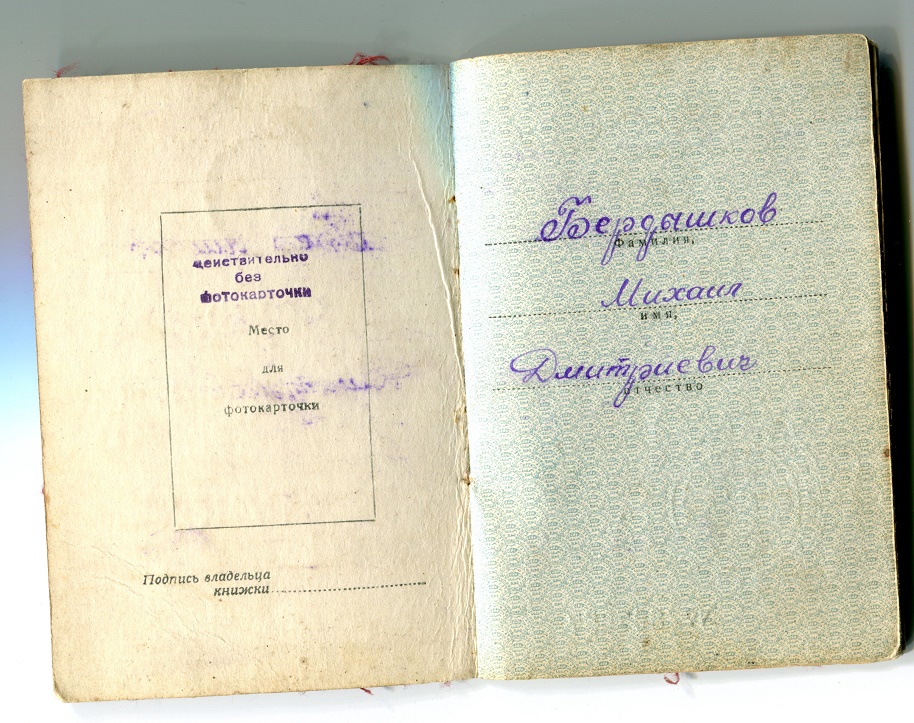 действительно
без
фотокарточки
Место
для
фотокарточки
Подпись владельца
книжки
Бердышков
Фамилия,
Михаил
имя,
Дмитриевич
отчество